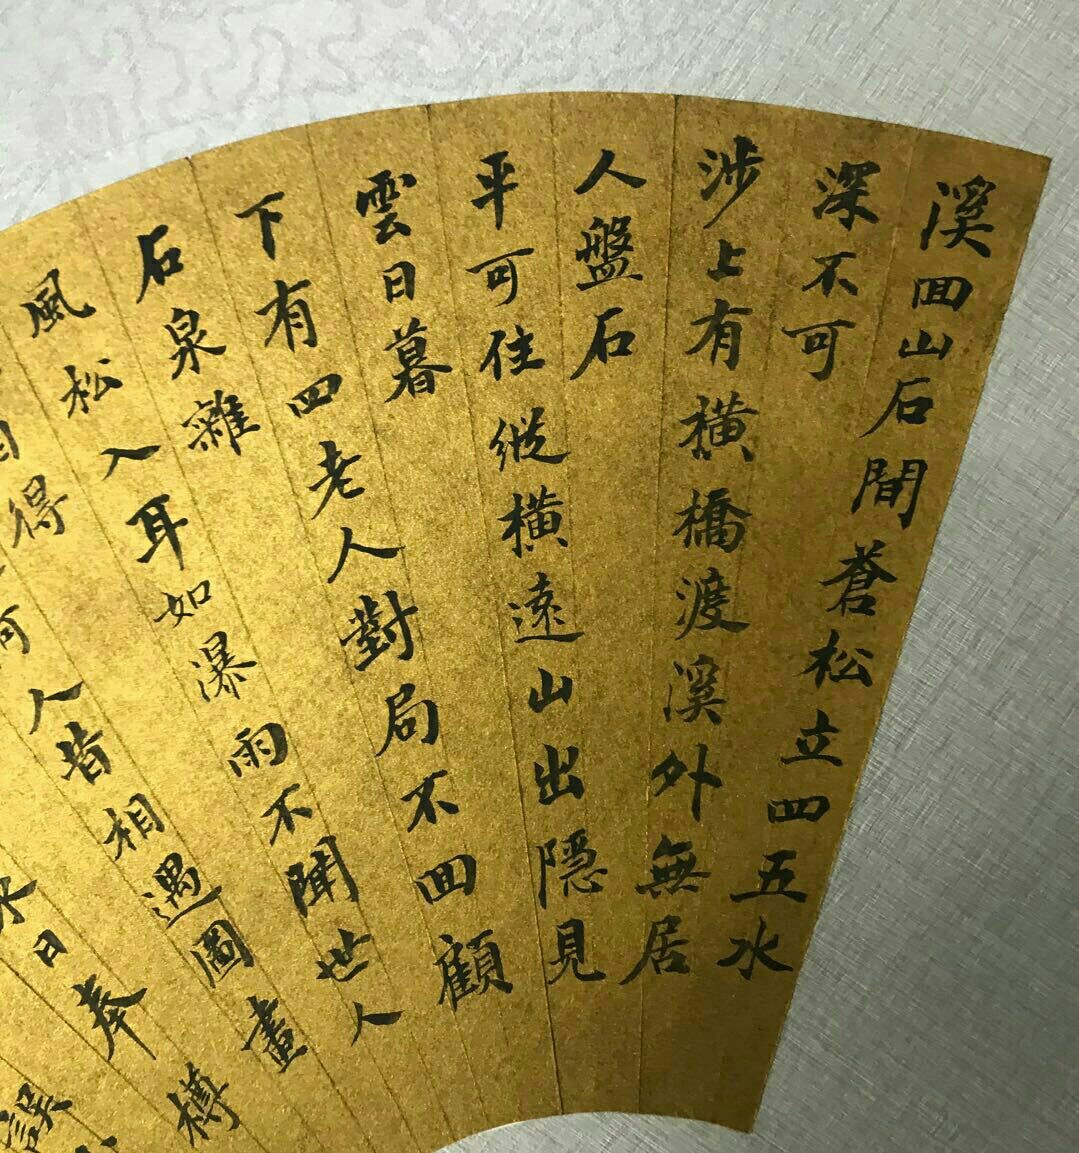 溪回山石間蒼松立四五水
深不可
涉上有橫橋渡溪外無居
人盤石
平可住縱橫遠山出隱見
雲日暮
下有四老人對局不回顧
石泉雜
風松入耳如瀑雨不聞世人
自得
何人昔相遇圖畫
日奉樽
誤